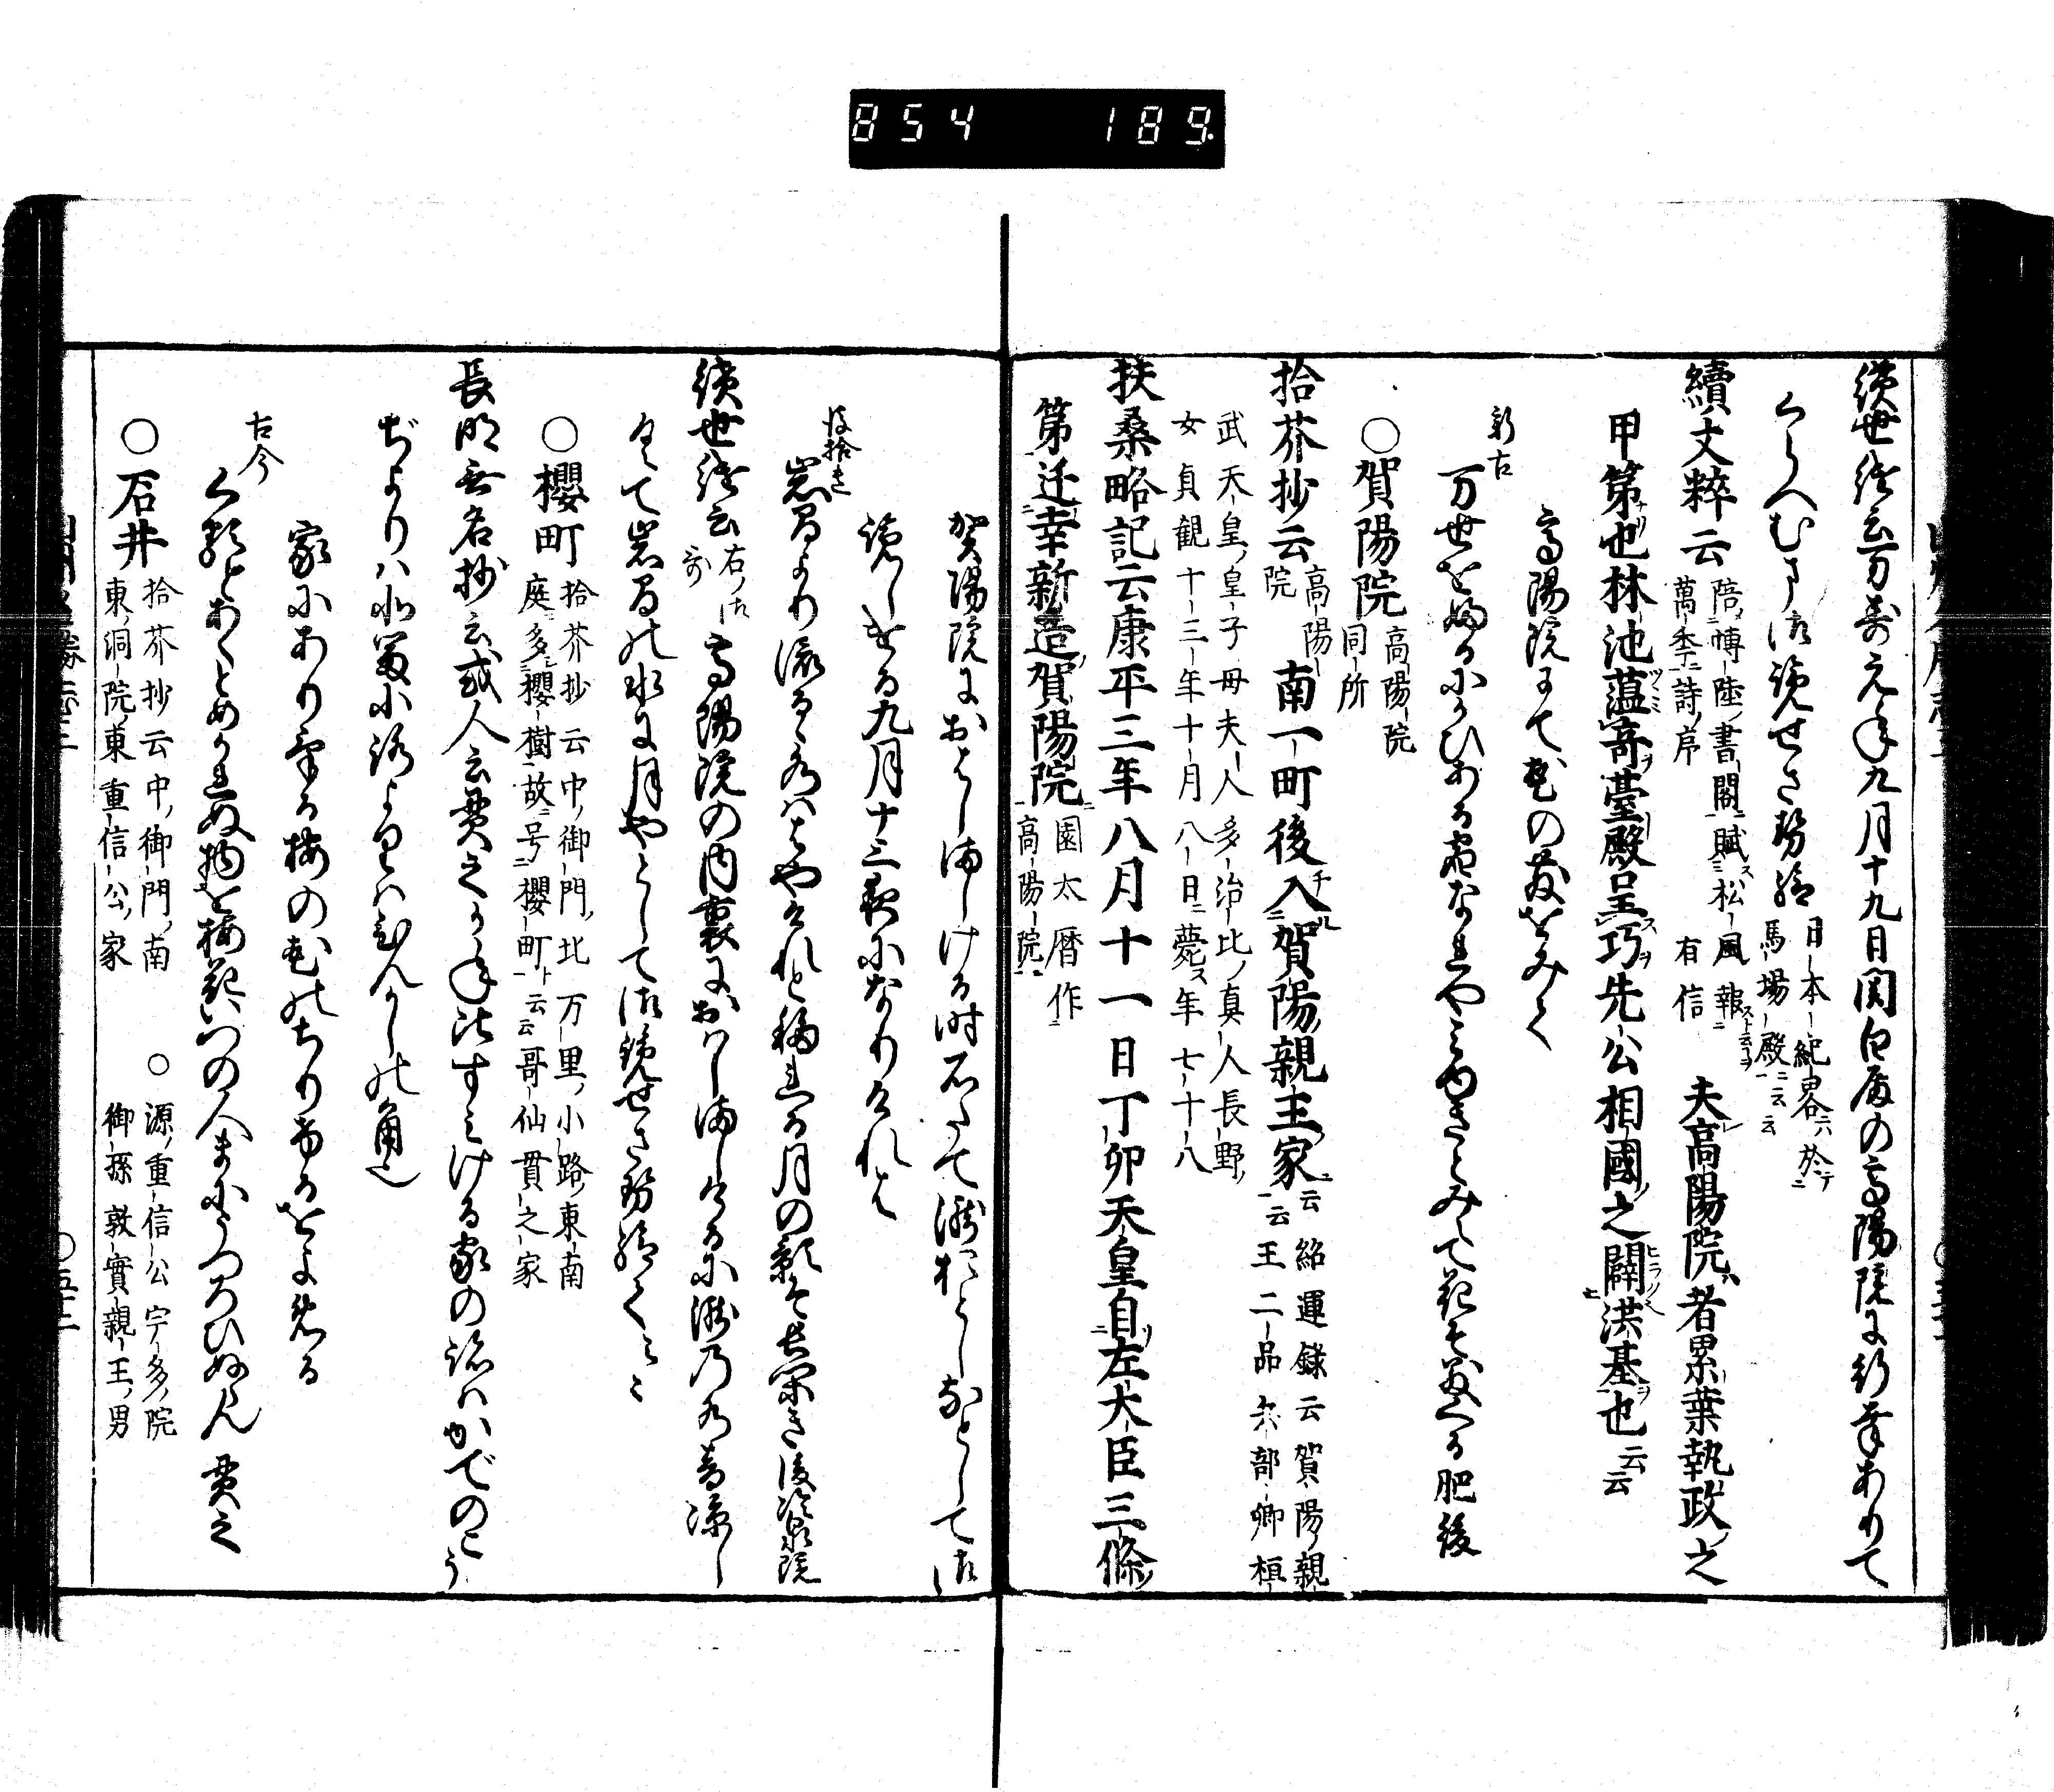 854 189
續世継云万寿元年九月十九日関白殿の高陽院に行幸ありて
くらべむま御覧せさせ給 日本紀畧ニ六於テ馬場殿ニ云云
續文粹云 陪博陸書閣賦松風報萬季詩序 有信 夫高陽院者累葉執政之
甲第也林池薀寄臺殿呈巧先公相國之闢洪基也云云
高陽院にて花の散をみて
新古 万世をふるにかひある宿なれやみゆきとみえて花そ散ける 肥後
○賀陽院 高陽院同所
拾芥抄云 高陽院 南一町後入賀陽親王家云云 紹運録云賀陽親王二品六部卿桓
武天皇皇子母夫人多治比真人長野女貞観十三年十月八日薨年七十八
扶桑略記云康平三年八月十一日丁卯天皇自左大臣三條
第迁幸新造賀陽院 園太暦作高陽院
賀陽院におはしましける時石たて瀧おとしなとして御
覧しける九月十三夜になりけれは
後拾遺 岩間より流るゝ水ははやけれとうつれる月の影そ長閑き 後冷泉院
續世継云 右ノ御哥 高陽院の内裏におはしましけるに瀧の水音凉し
くて岩間の水に月やとして御覧せさせ給て云云
○櫻町 拾芥抄云中御門北万里小路東南庭多櫻樹故号櫻町ト云云哥仙貫之家
長明無名抄云或人云貫之か年比すみける家の跡はかでのこう
ぢよりは北富小路よりはひんかしの角也
家にありける梅の花のちりけるをよめる
古今 くるとあくとめかれぬ物を梅花いつの人まにうつろひぬらん 貫之
○石井 拾芥抄云中御門南東洞院東重信公家 ○源重信公宇多院御孫敦實親王男